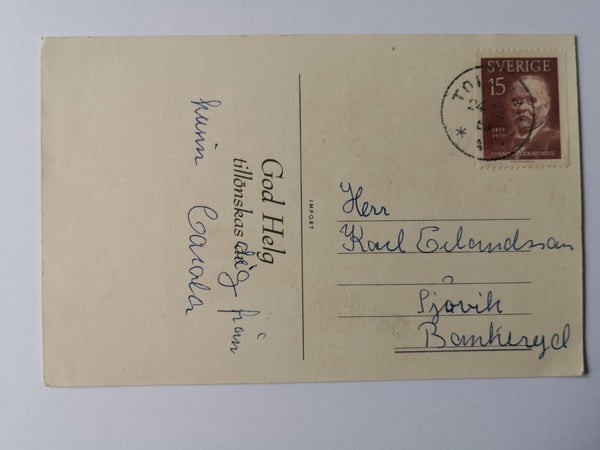 God Helg
tillönskas dig från
Carola
IMPORT
SVERIGE
15
1859
1959
SVANTE ARRHENIUS
Herr
Karl Erlandsson
Sjövik
Bankeryd